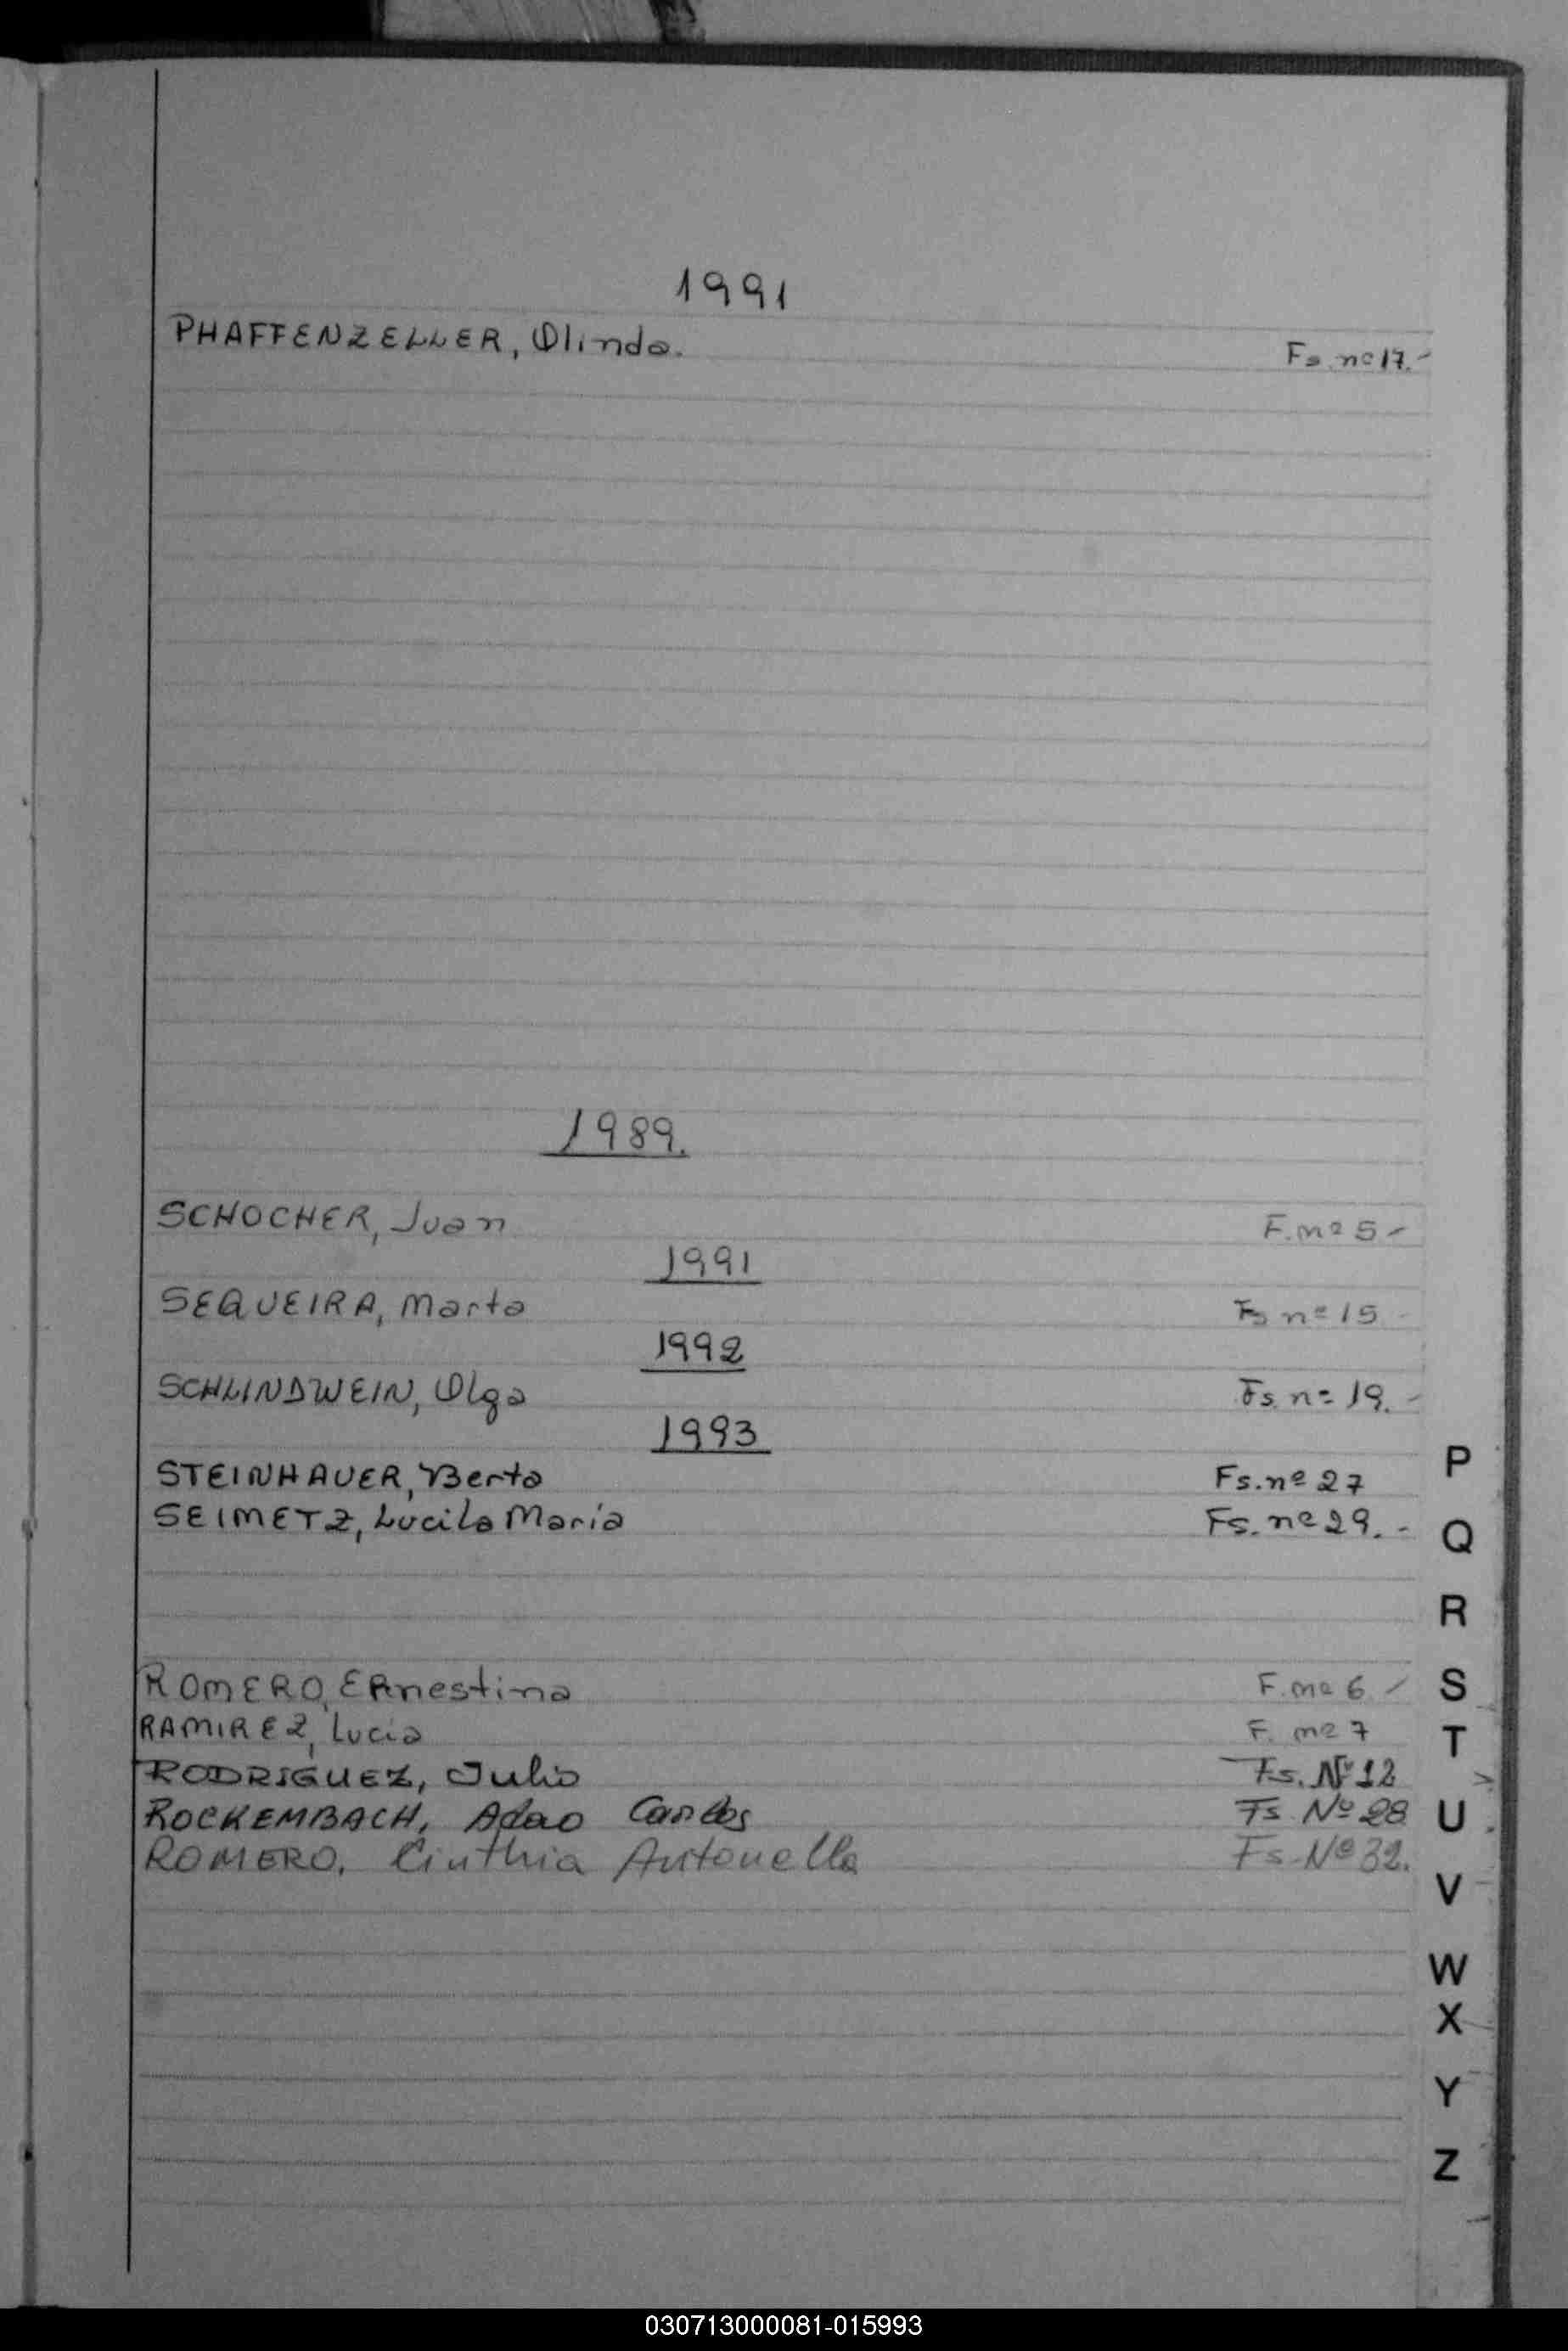 1991
PHAFFENZELLER, Olinda. Fs. nº 17.-
1989.
SCHOCHER, Juan F. nº 5-
1991
SEQUEIRA, Marta Fs nº 15-
1992
SCHLINDWEIN, Olga Fs. nº 19.-
1993
STEINHAUER, Berta Fs. nº 27
SEIMETZ, Lucila María Fs. nº 29.-
ROMERO, Ernestina F. nº 6-
RAMIREZ, Lucia F. nº 7
RODRIGUEZ, Julio Fs. Nº 12
ROCKEMBACH, Adao Carlos Fs. Nº 28
ROMERO, Cinthia Antonella Fs. Nº 32.
P
Q
R
S
T
U
V
W
X
Y
Z
030713000081-015993